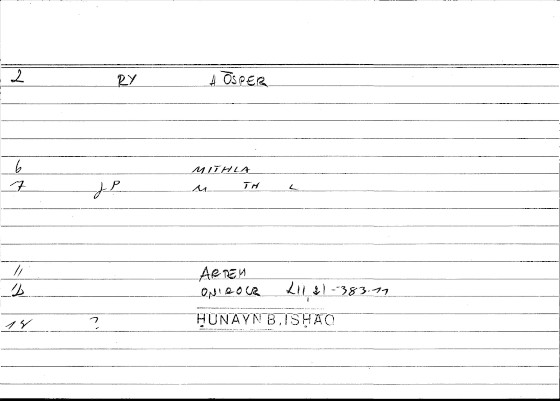 2 RY A ŌSPER
6 MITHLA
7 JP M TH L
11 ARTEM
12 ONIROCR
14 ? ḤUNAYN B. ISḤAQ